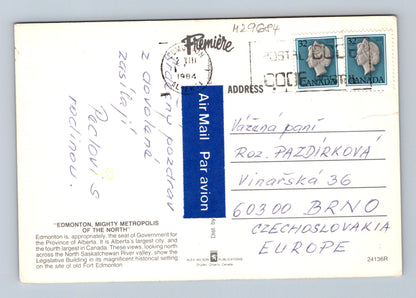 Première
M29684
EDMONTON
2 VIII
1984
POSTAL CODE
CODE POSTAL
32
CANADA
32
CANADA
ADDRESS
Air Mail Par avion
Srdečný pozdrav
z dovolené
zasílají
Peclovi s
rodinou.
Vážená paní
Roz. PAZDÍRKOVÁ
Vinařská 36
60300 BRNO
CZECHOSLOVAKIA
EUROPE
"EDMONTON, MIGHTY METROPOLIS
OF THE NORTH"
Edmonton is, appropriately, the seat of Government for
the Province of Alberta. It is Alberta's largest city, and
the fourth largest in Canada. These views, looking north
across the North Saskatchewan River valley, show the
Legislative Building in its magnificent historical setting
on the site of old Fort Edmonton.
ALEX WILSON PUBLICATIONS
Dryden, Ontario, Canada
24136R